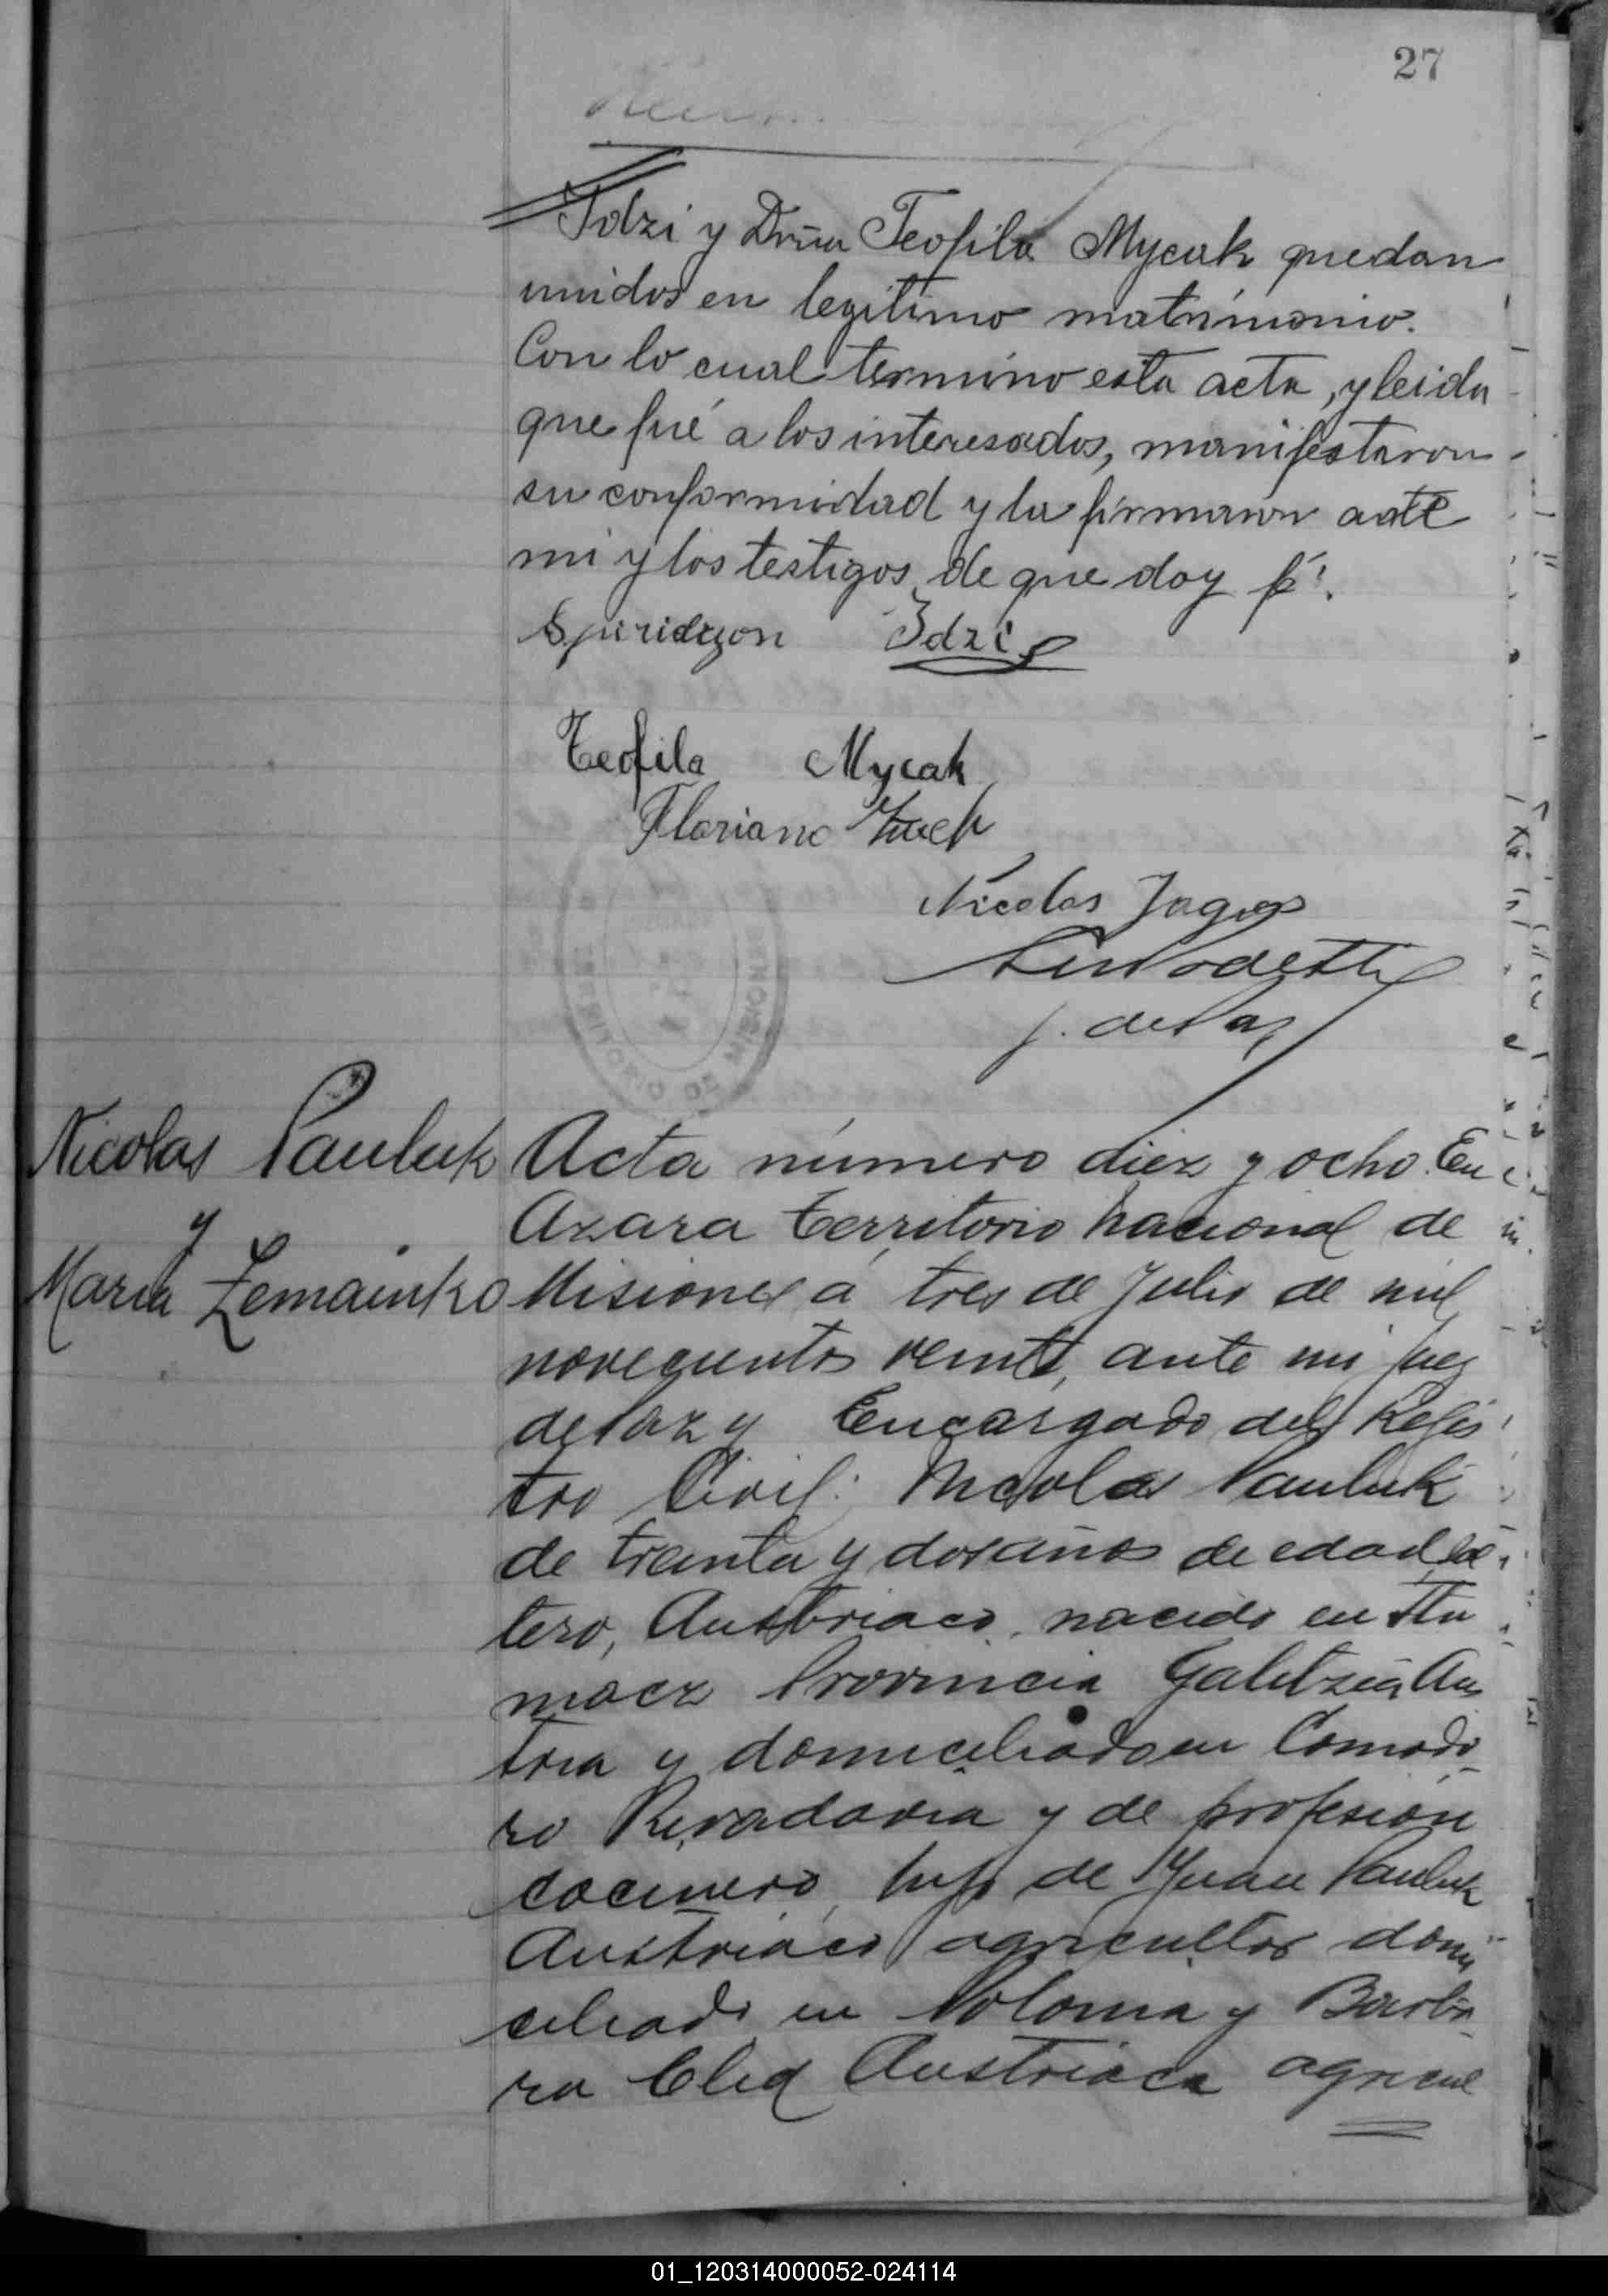 27
Idzi y Doña Teofila Mycak quedan
unidos en legitimo matrimonio.
Con lo cual termino esta acta, y leida
que fué a los interesados, manifestaron
su conformidad y la firmaron ante
mi y los testigos de que doy fé.
Spiridyon Idzi
Teofila Mycak
Floriano
Nicolas
J. de Paz
TERRITORIO DE MISIONES
Nicolas Pauluk
y
Maria Zemainko
Acta número diez y ocho. En
Azara territorio nacional de
Misiones a tres de Julio de mil
novecientos veinte, ante mi Juez
de Paz y Encargado del Regis
tro Civil: Nicolas Pauluk
de treinta y dos años de edad, sol
tero, Austriaco, nacido en Tlu
macz Provincia Galitzia Aus
tria y domiciliado en Comodo-
ro Rivadavia y de profesion
cocinero, hijo de Juan Pauluk
Austriaco agricultor domi
ciliado en Polonia y Barba-
ra Austriaca agricul
01_120314000052-024114